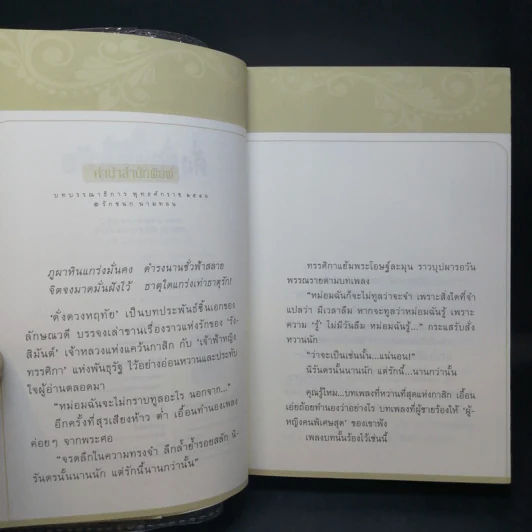 คำนำสำนักพิมพ์
บทบรรณาธิการ พุทธศักราช ๒๕๔๖
ภูผาหินแกร่งมั่นคง ดำรงนานชั่วฟ้าสลาย
จิตจงมาดมั่นฝังไว้ ธาตุใดแกร่งเท่าธาตุรัก!
'ดั่งดวงหฤทัย' เป็นบทประพันธ์ชิ้นเอกของ
ลักษณวดี บรรจงเล่าขานเรื่องราวแห่งรักของ 'รังสิ
มันต์' เจ้าหลวงแห่งแคว้นกาสิก กับ 'เจ้าฟ้าหญิง
ทรรศิกา' แห่งพันธุรัฐ ไว้อย่างอ่อนหวานและประทับ
ใจผู้อ่านตลอดมา
"หม่อมฉันจะไม่กราบทูลอะไร นอกจาก..."
อีกครั้งที่สุรเสียงห้าว ต่ำ เอื้อนทำนองเพลง
ค่อยๆ จากพระศอ
"จรดลึกในความทรงจำ ลึกล้ำย้ำรอยสลัก นิ-
รันดรนั้นนานนัก แต่รักนี้นานกว่านั้น"
ทรรศิกาแย้มพระโอษฐ์ละมุน ราวบุปผารอวัน
พรรณรายตามบทเพลง
"หม่อมฉันก็จะไม่ทูลว่าจะจำ เพราะสิ่งใดที่จำ
แปลว่า มีเวลาลืม หากจะทูลว่าหม่อมฉันรู้ เพราะ
ความ 'รู้' ไม่มีวันลืม หม่อมฉันรู้..." กระแสรับสั่ง
หวานนัก
"ว่าจะเป็นเช่นนั้น...แน่นอน!"
นิรันดรนั้นนานนัก แต่รักนี้...นานกว่านั้น
คุณรู้ไหม...บทเพลงที่หวานที่สุดแห่งกาสิก เอื้อน
เอ่ยถ้อยทำนองว่าอย่างไร บทเพลงที่ผู้ชายร้องให้ 'ผู้-
หญิงคนพิเศษสุด' ของเขาฟัง
เพลงบทนั้นร้องไว้เช่นนี้